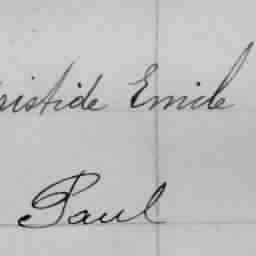 ristide Emile
Paul